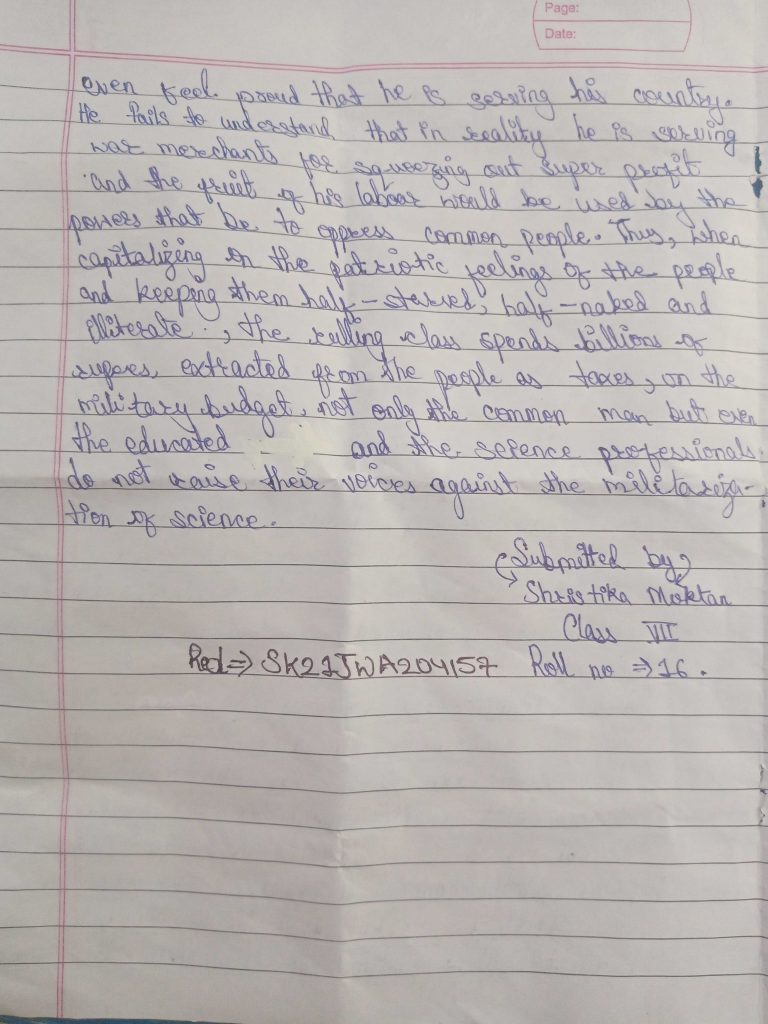 Page:
Date:
even feel proud that he is serving his country.
He fails to understand that in reality he is serving
war merchants for squeezing out super profit
and the fruit of his labour would be used by the
powers that be to oppress common people. Thus, when
capitalizing on the patriotic feelings of the people
and keeping them half-starved, half-naked and
illiterate, the rulling class spends billions of
rupees, extracted from the people as taxes, on the
military budget, not only the common man but even
the educated and the science professionals
do not raise their voices against the militariza-
tion of science.
Submitted by
Shristika Moktan
Class VII
Red⇒ SK21JWA204157 Roll no ⇒16.